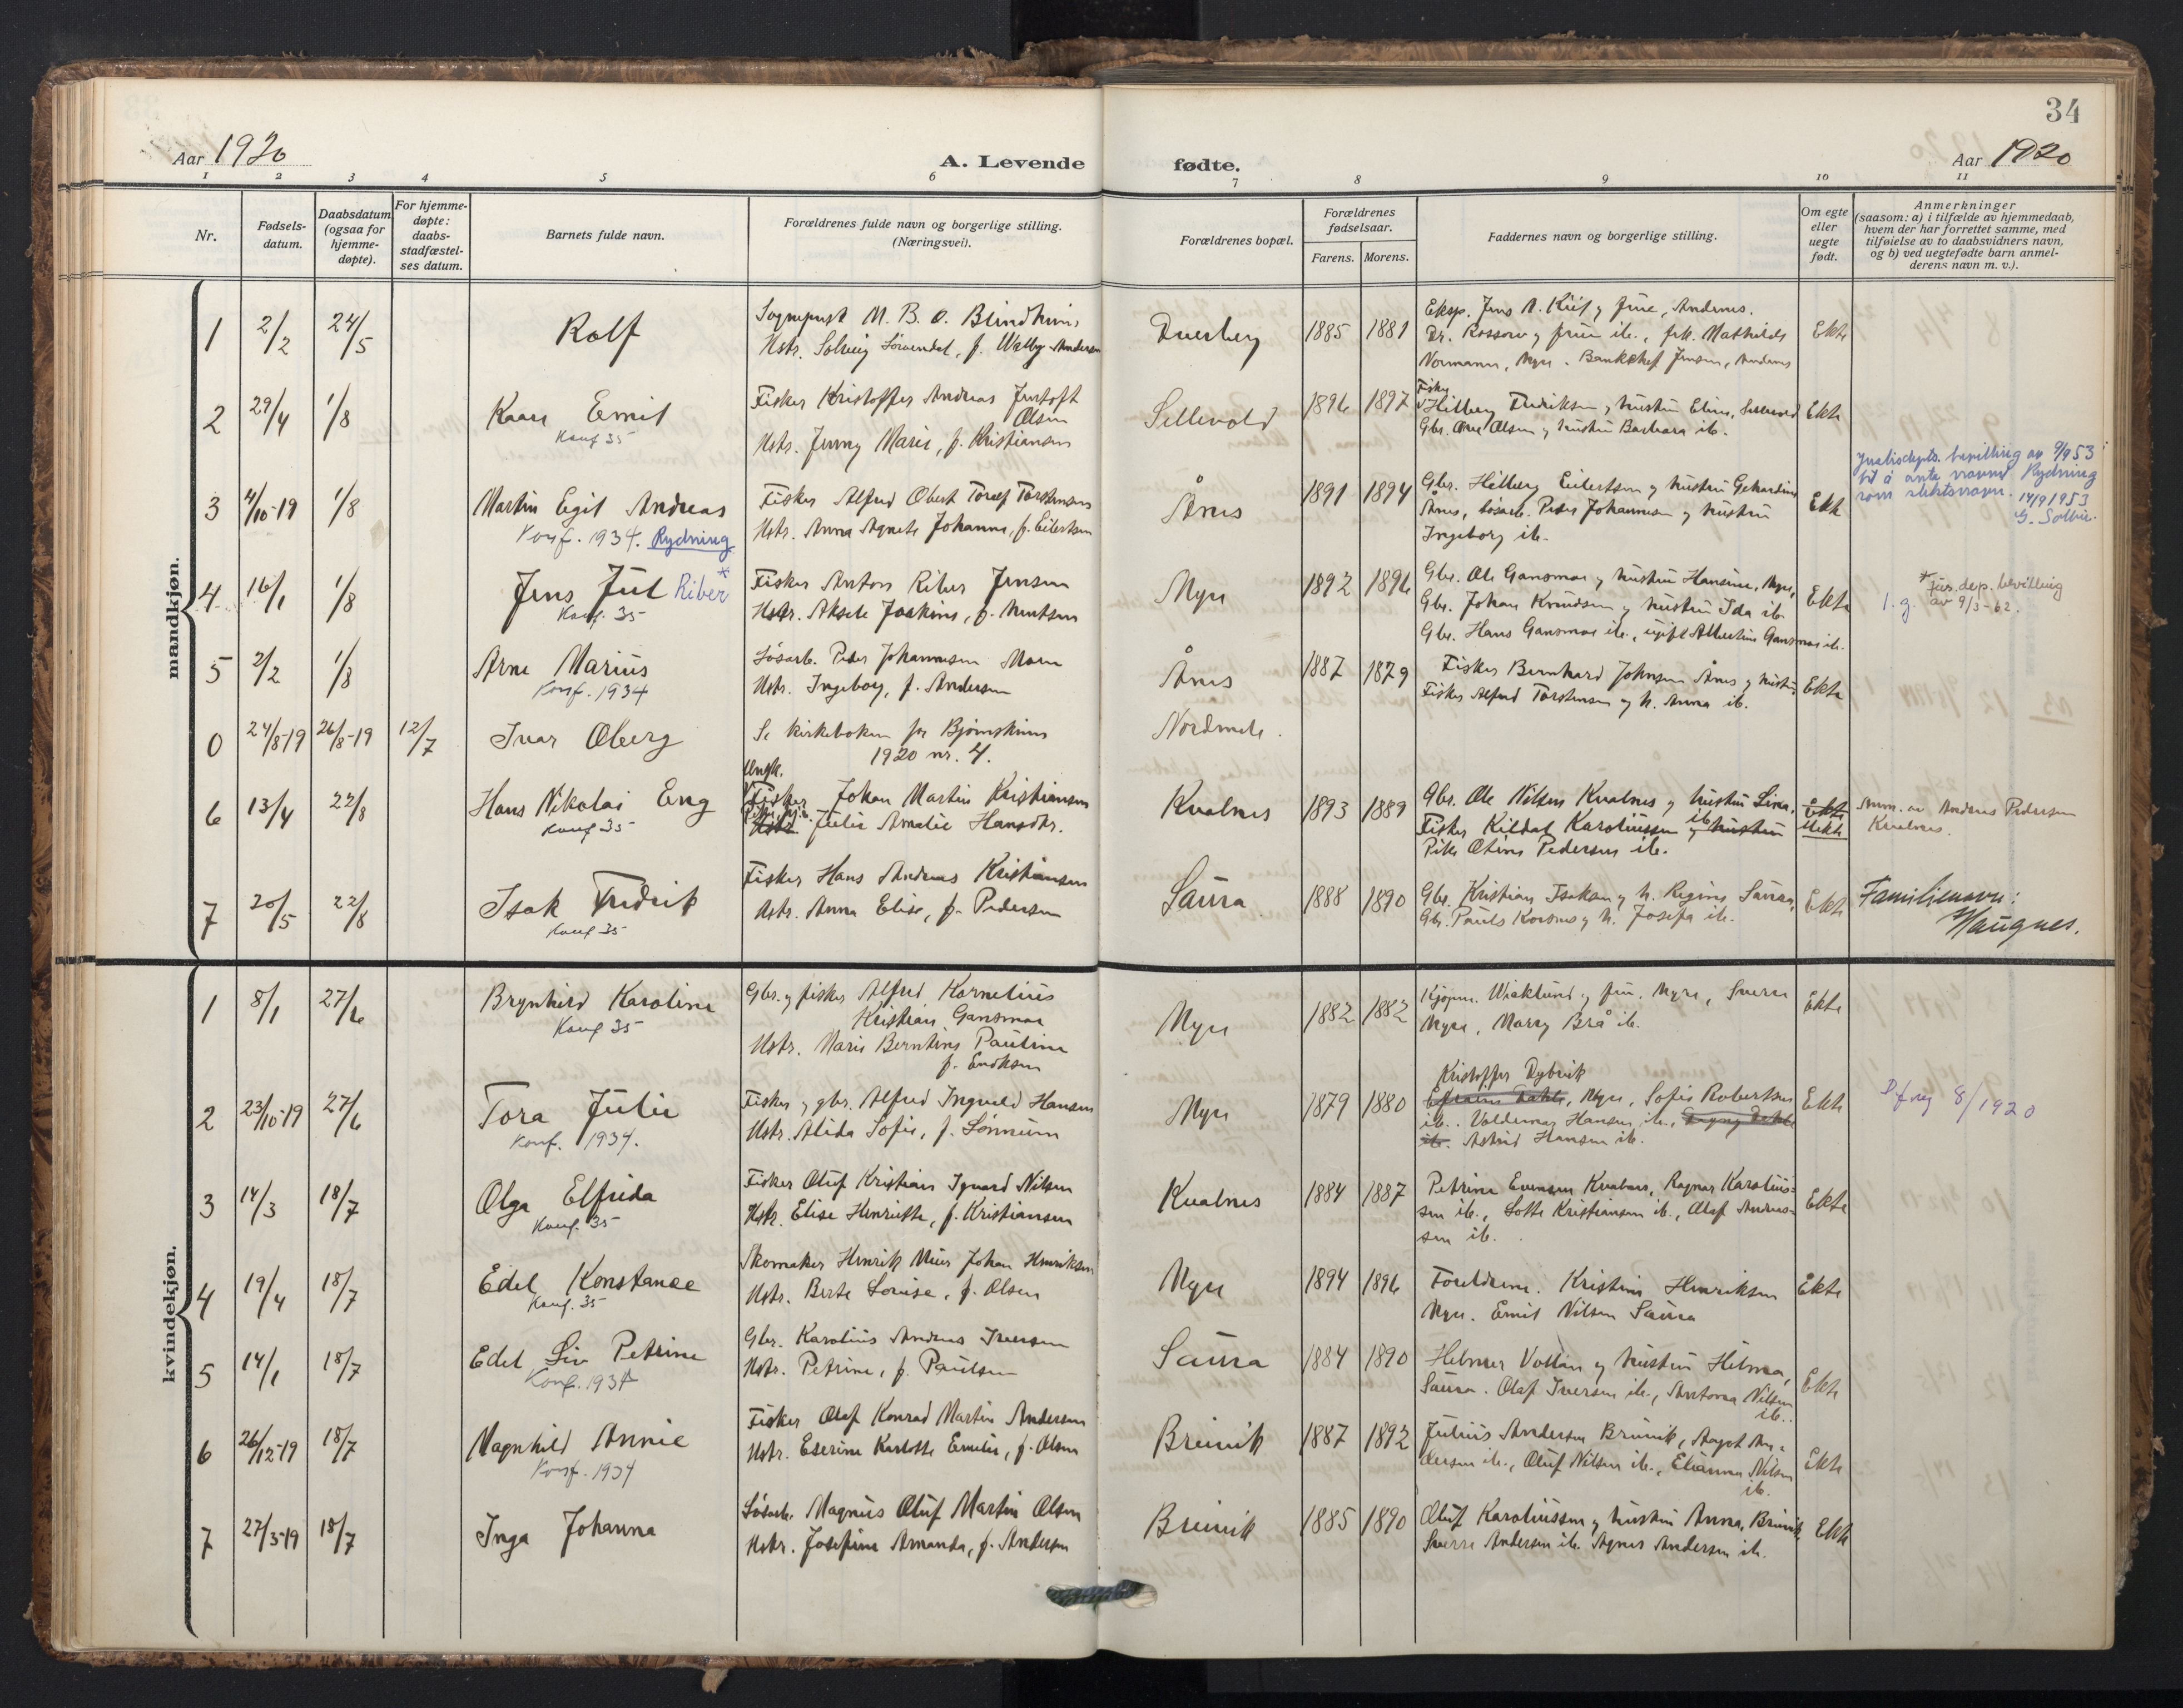 34
Aar 1920
A. Levende fødte.
Aar 1920
1 2 3 4 5 6 7 8 9 10 11
Nr.
Fødsels-
datum.
Daabsdatum
(ogsaa for
hjemme-
døpte).
For hjemme-
døpte:
daabs-
stadfæstel-
ses datum.
Barnets fulde navn.
Forældrenes fulde navn og borgerlige stilling.
(Næringsvei).
Forældrenes bopæl.
Forældrenes
fødselsaar.
Farens. Morens.
Faddernes navn og borgerlige stilling.
Om egte
eller
uegte
født.
Anmerkninger
(saasom: a) i tilfælde av hjemmedaab,
hvem der har forrettet samme, med
tilføielse av to daabsvidners navn,
og b) ved uegtefødte barn anmel-
derens navn m. v.).
mandkjøn.
1 2/2 24/5 Rolf
Sogneprest M. B. O. Blindheim
Hstr. Solveig Sørvendal, f. Walby Andersen
Dverberg 1885 1881
Eksp. Jens A. Kiil og frue, Andenes.
Dr. Rossow og frue ib., frk. Mathilde
Normann, Myre. Bankchef Jensen, Andenes
Ekte
2 29/4 1/8 Kaare Emil
Konf 35
Fisker Kristoffer Andreas Jentoft
Olsen
Hstr. Jenny Marie, f. Kristiansen
Sellevold 1896 1897
Fisker
Hilberg Fredriksen og hustru Eline, Sellevold
Gbr. Olsen og hustru Barbara ib.
Ekte
3 4/10-19 1/8 Martin Egil Andreas
Konf. 1934. Rydning
Fisker Alfred Obert Toralf Torstensen
Hstr. Anna Agnete Johanne, f. Eilertsen
Ånes 1891 1894
Gbr. Hilberg Eilertsen og hustru Gehardine
Ånes, løsarb. Peder Johannesen og hustru
Ingeborg ib.
Ekte
Justisdepts. bevilling av 9/9 53
til å anta navnet Rydning
som slektsnavn. 14/9 1953
G. Solbu.
4 16/1 1/8 Jens Jul Riber *
Konf. 35
Fisker Anton Riber Jensen
Hstr. Aksele Joakine, f. Knutsen
Myre 1892 1896
Gbr. Ole Gansmoe og hustru Hansine, Myre,
Gbr. Johan Knudsen og hustru Ida ib.
Gbr. Hans Gansmoe ib., ugift Albertine Gansmoe ib.
Ekte
* Jus.dep. bevilling
av 9/3-62.
5 2/2 1/8 Arne Marius
Konf. 1934
Løsarb. Peder Johannesen Moen
Hstr. Ingeborg, f. Andersen
Ånes 1887 1879
Fisker Bernhard Johnsen Ånes og hustru
Fisker Alfred Torstensen og h. Anna ib.
Ekte
0 24/8-19 26/8-19 12/7 Ivar Oberg
Se kirkeboken for Bjørnskinn
1920 nr. 4.
Nordmela.
6 13/4 22/8 Hans Nikolai Eng
Konf 35
Ungk.
Fisker Johan Martin Kristiansen
Julie Amalie Hansdtr.
Kvalnes 1893 1889
Gbr. Ole Nilsen Kvalnes og hustru Lina,
ib
Fisker Kildal Karoliussen og hustru
Pike Otine Pedersen ib.
Ekte
Uekte
Anm. av Andreas Pedersen
Kvalnes.
7 20/5 22/8 Isak Fredrik
Konf 35
Fisker Hans Andreas Kristiansen
Hstr. Anna Elise, f. Pedersen
Saura 1888 1890
Gbr. Kristian Isaksen og h. Regine Saura,
Gbr. Pauls Korsnes og h. Josefa ib.
Ekte
Familienavn:
Haugnes.
kvindekjøn.
1 8/1 27/6 Brynhild Karoline
Konf 35
Gbr. og fisker Alfred Kornelius
Kristian Gansmoe
Hstr. Marie Berntine Pauline
f. Endksen
Myre 1882 1882
Kjøpm. Wiklund og frue. Myre, Sverre
Myre, Marry Brå ib.
Ekte
2 23/10-19 27/6 Tora Julie
Konf. 1934.
Fisker og gbr. Alfred Ingvald Hansen
Hstr. Alida Sofie, f. Lønnum
Myre 1879 1880
Kristoffer Dybvik
Efraim Dahle, Myre, Sofie Robertsen
ib. Valdemar Hansen, ib., Dagny Dahle
ib. Astrid Hansen ib.
Ekte
8/1920
3 14/3 18/7 Olga Elfrida
Konf. 35
Fisker Oluf Kristian Igvard Nilsen
Hstr. Elise Henriette, f. Kristiansen
Kvalnes 1884 1887
Petrine Evensen Kvalnes, Ragnar Karolius-
sen ib., Lotte Kristiansen ib., Olaf Andreas-
sen ib.
Ekte
4 19/4 18/7 Edel Konstance
Konf. 35
Skomaker Henrik Meier Johan Henriksen
Hstr. Berte Louise, f. Olsen
Myre 1894 1896
Foreldrene. Kristine Henriksen
Myre. Emil Nilsen Saura
Ekte
5 14/1 18/7 Edel Liv Petrine
Konf. 1934
Gbr. Karolius Andreas Iversen
Hstr. Petrine, f. Paulsen
Saura 1884 1890
Helmer Vollan og hustru Hilma,
Saura. Olaf Iversen ib., Antona Nilsen
ib.
Ekte
6 26/12-19 18/7 Magnhild Annie
Konf. 1934
Fisker Olaf Konrad Martin Andersen
Hstr. Eserine Karlotte Emelie, f. Olsen
Breivik 1887 1892
Julius Andersen Breivik, Aagot An-
dersen ib., Oluf Nilsen ib., Elianna Nilsen
ib.
Ekte
7 27/3-19 18/7 Inga Johanna
Løsarb. Magnus Oluf Martin Olsen
Hstr. Josefine Amanda, f. Andersen
Breivik 1885 1890
Oluf Karoliussen og hustru Anna, Breivik,
Sverre Andersen ib. Agnes Andersen ib.
Ekte